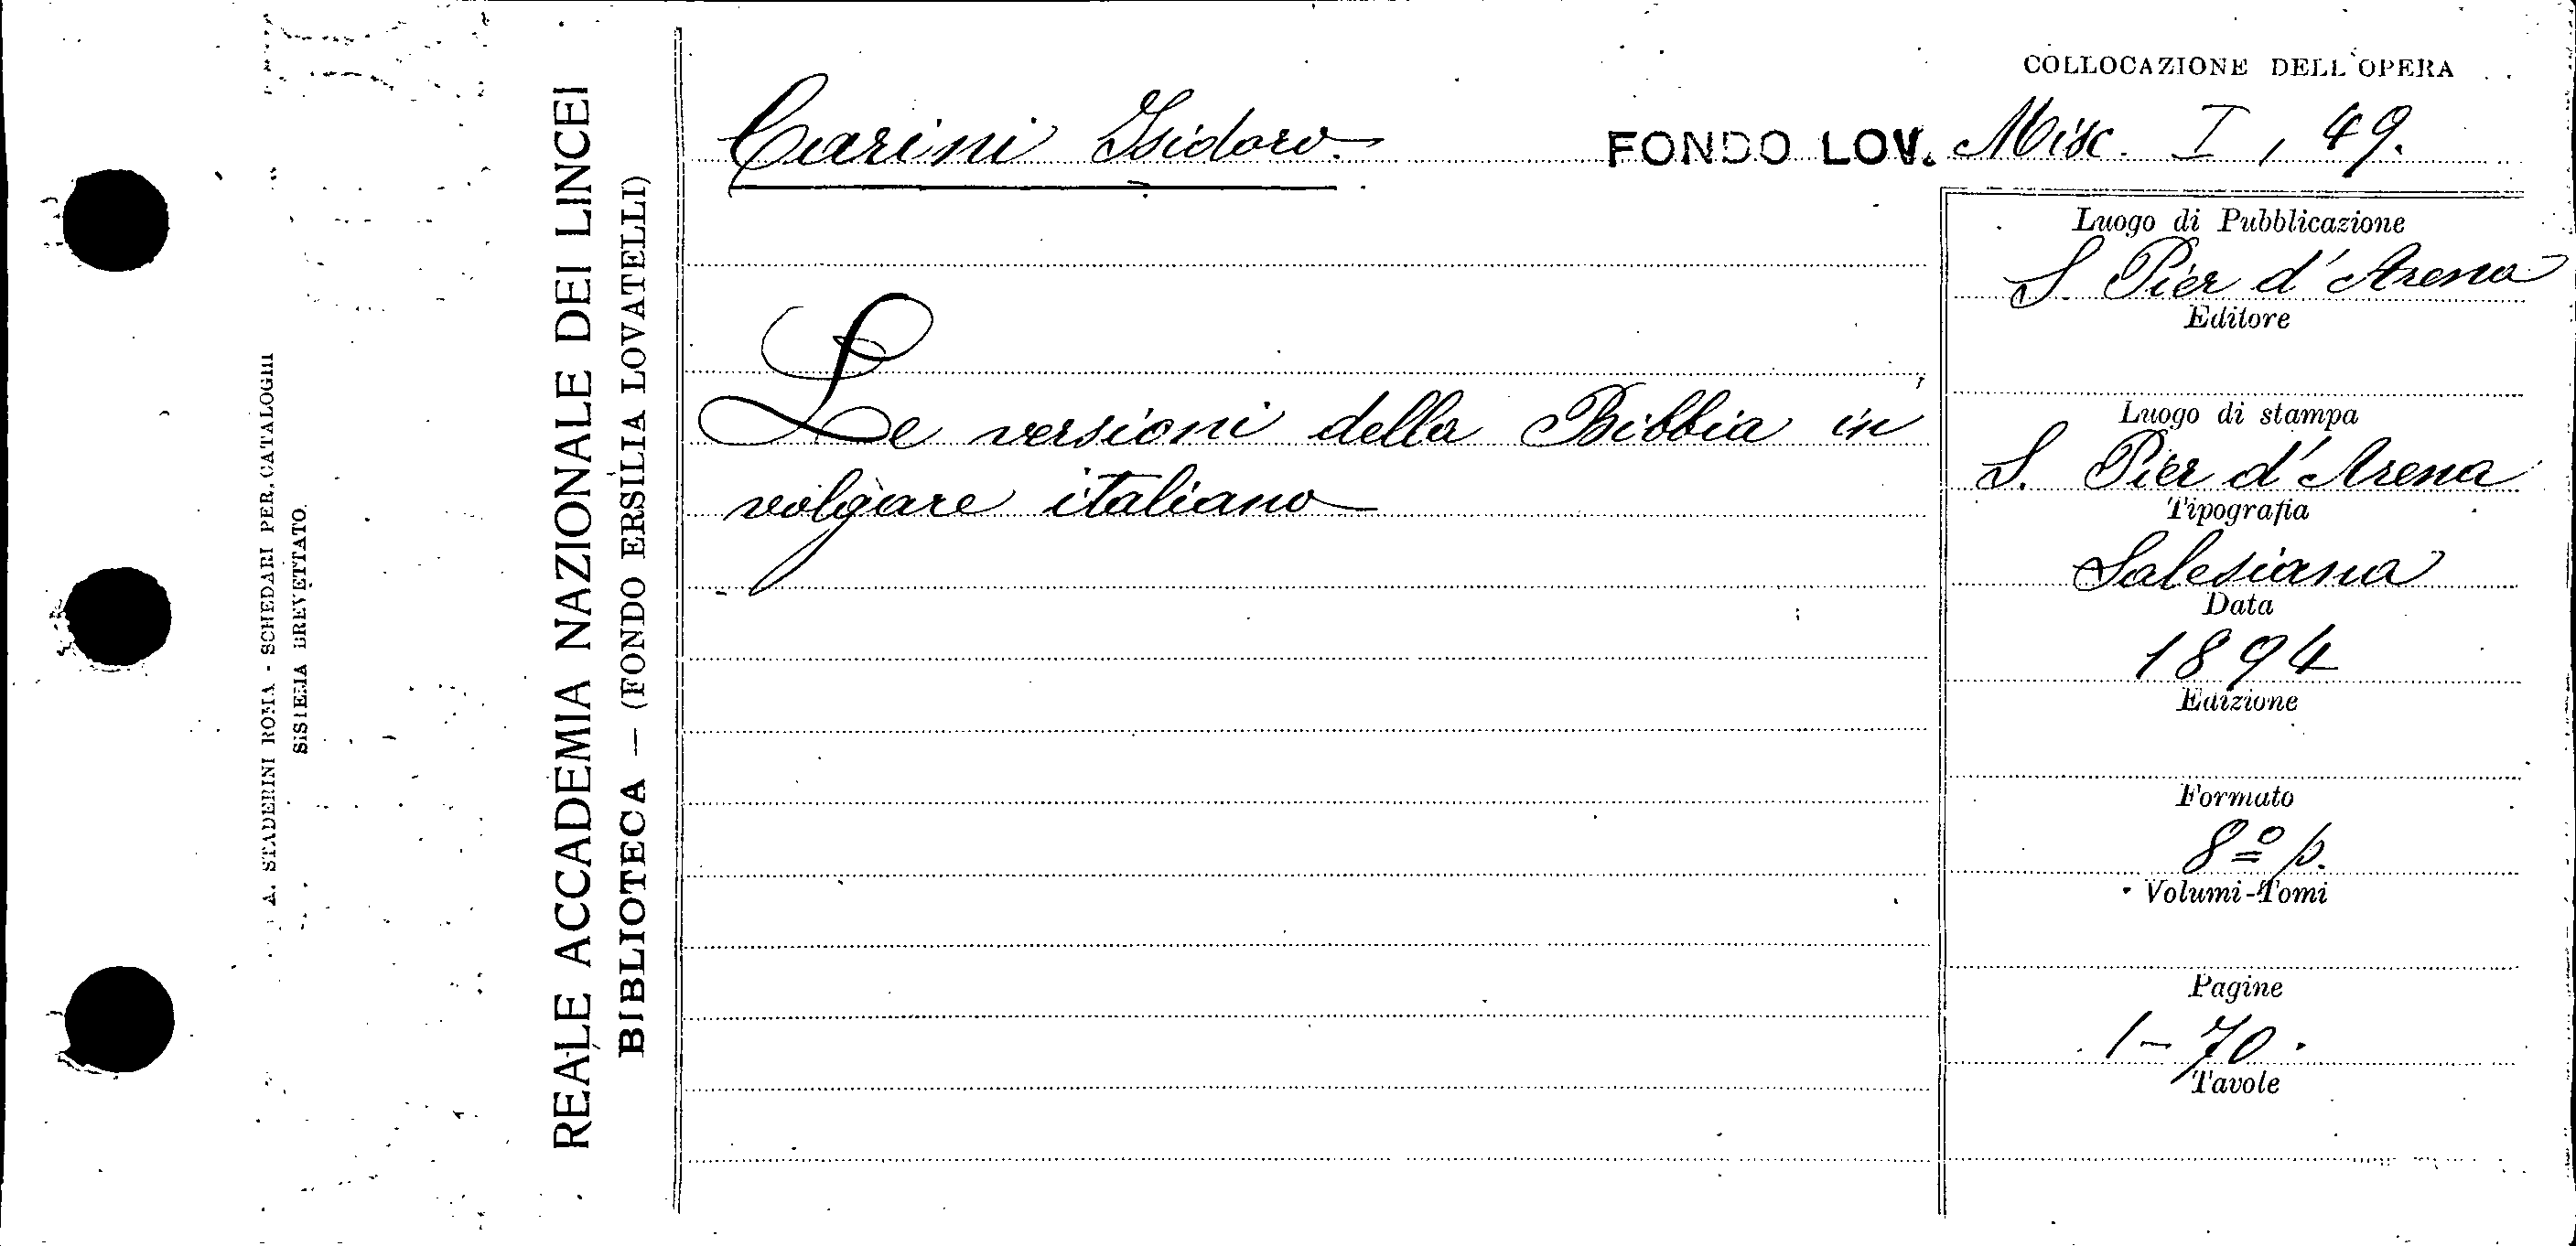 A. STADERINI ROMA - SCHEDARI PER CATALOGHI
SISTEMA BREVETTATO
REALE ACCADEMIA NAZIONALE DEI LINCEI
BIBLIOTECA — (FONDO ERSILIA LOVATELLI)
Carini Isidoro
Le versioni della Bibbia in
volgare italiano
COLLOCAZIONE DELL'OPERA
FONDO LOV. Misc. I, 49.
Luogo di Pubblicazione
S. Pier d'Arena
Editore
Luogo di stampa
S. Pier d'Arena
Tipografia
Salesiana
Data
1894
Edizione
Formato
8º p.
Volumi-Tomi
Pagine
1-70.
Tavole